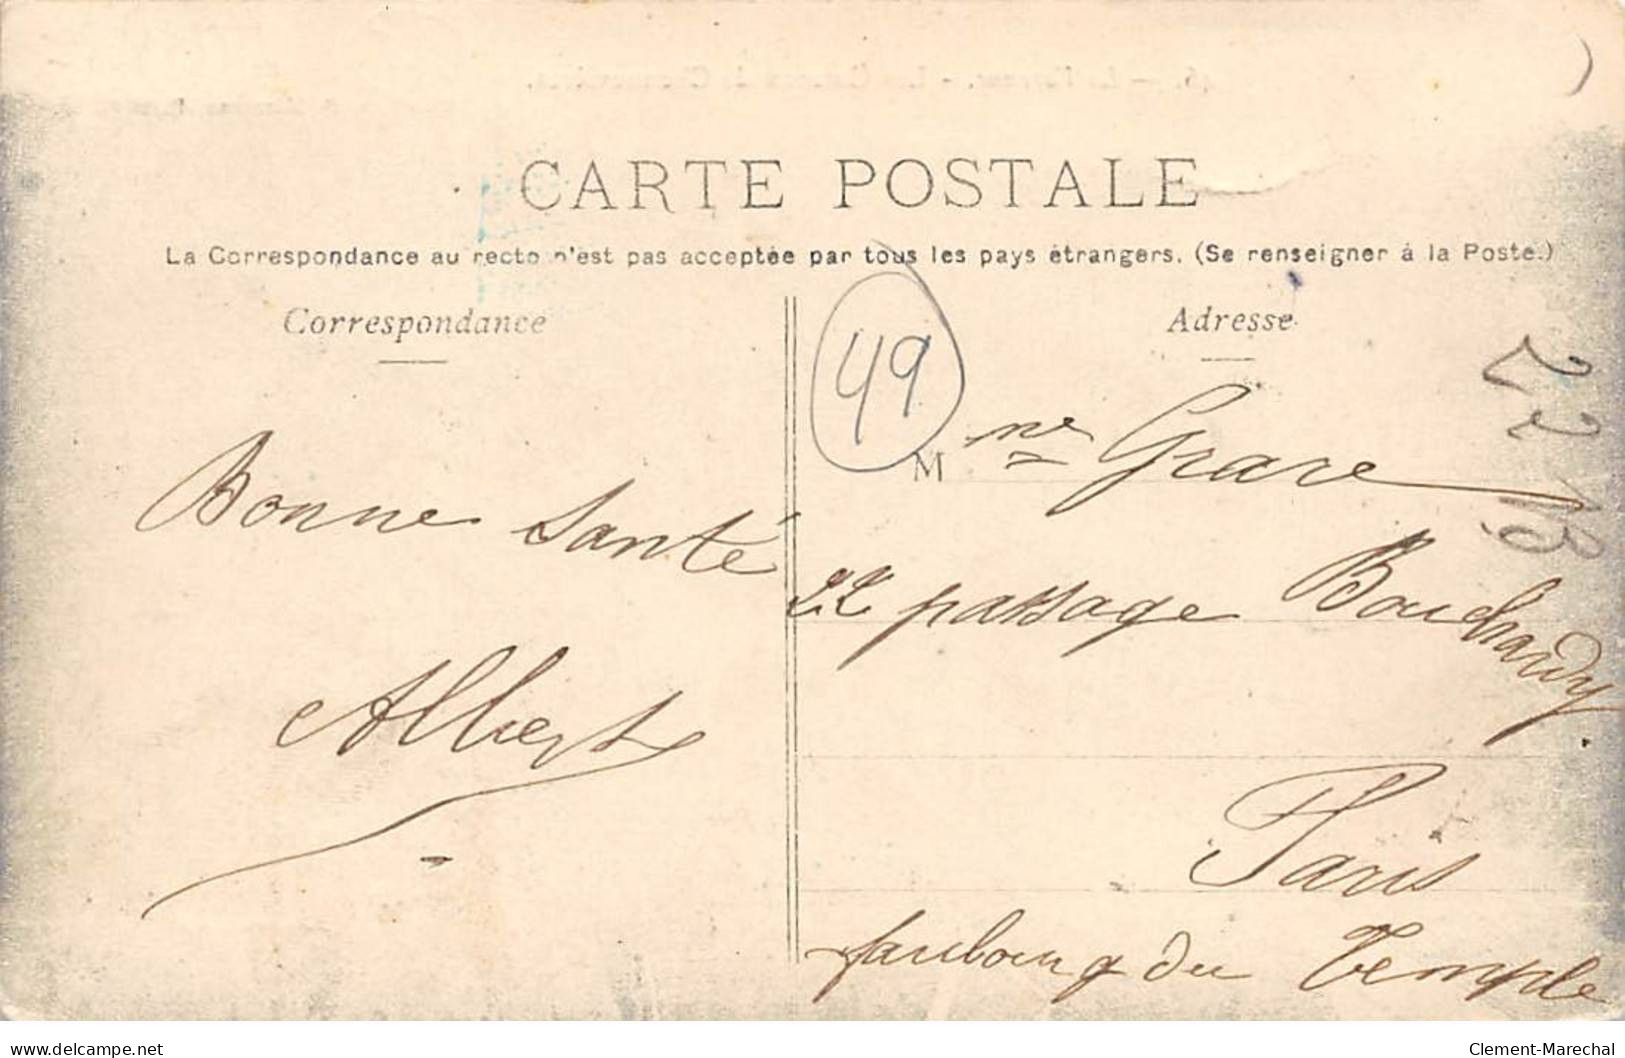 CARTE POSTALE
La Correspondance au recto n'est pas acceptée par tous les pays étrangers. (Se renseigner à la Poste.)
Correspondance
Bonne Santé
Albert
Adresse
49
M me Grare
22 passage Bouchardy.
Paris
faubourg du Temple
22
13
www.delcampe.net
Clement-Marechal